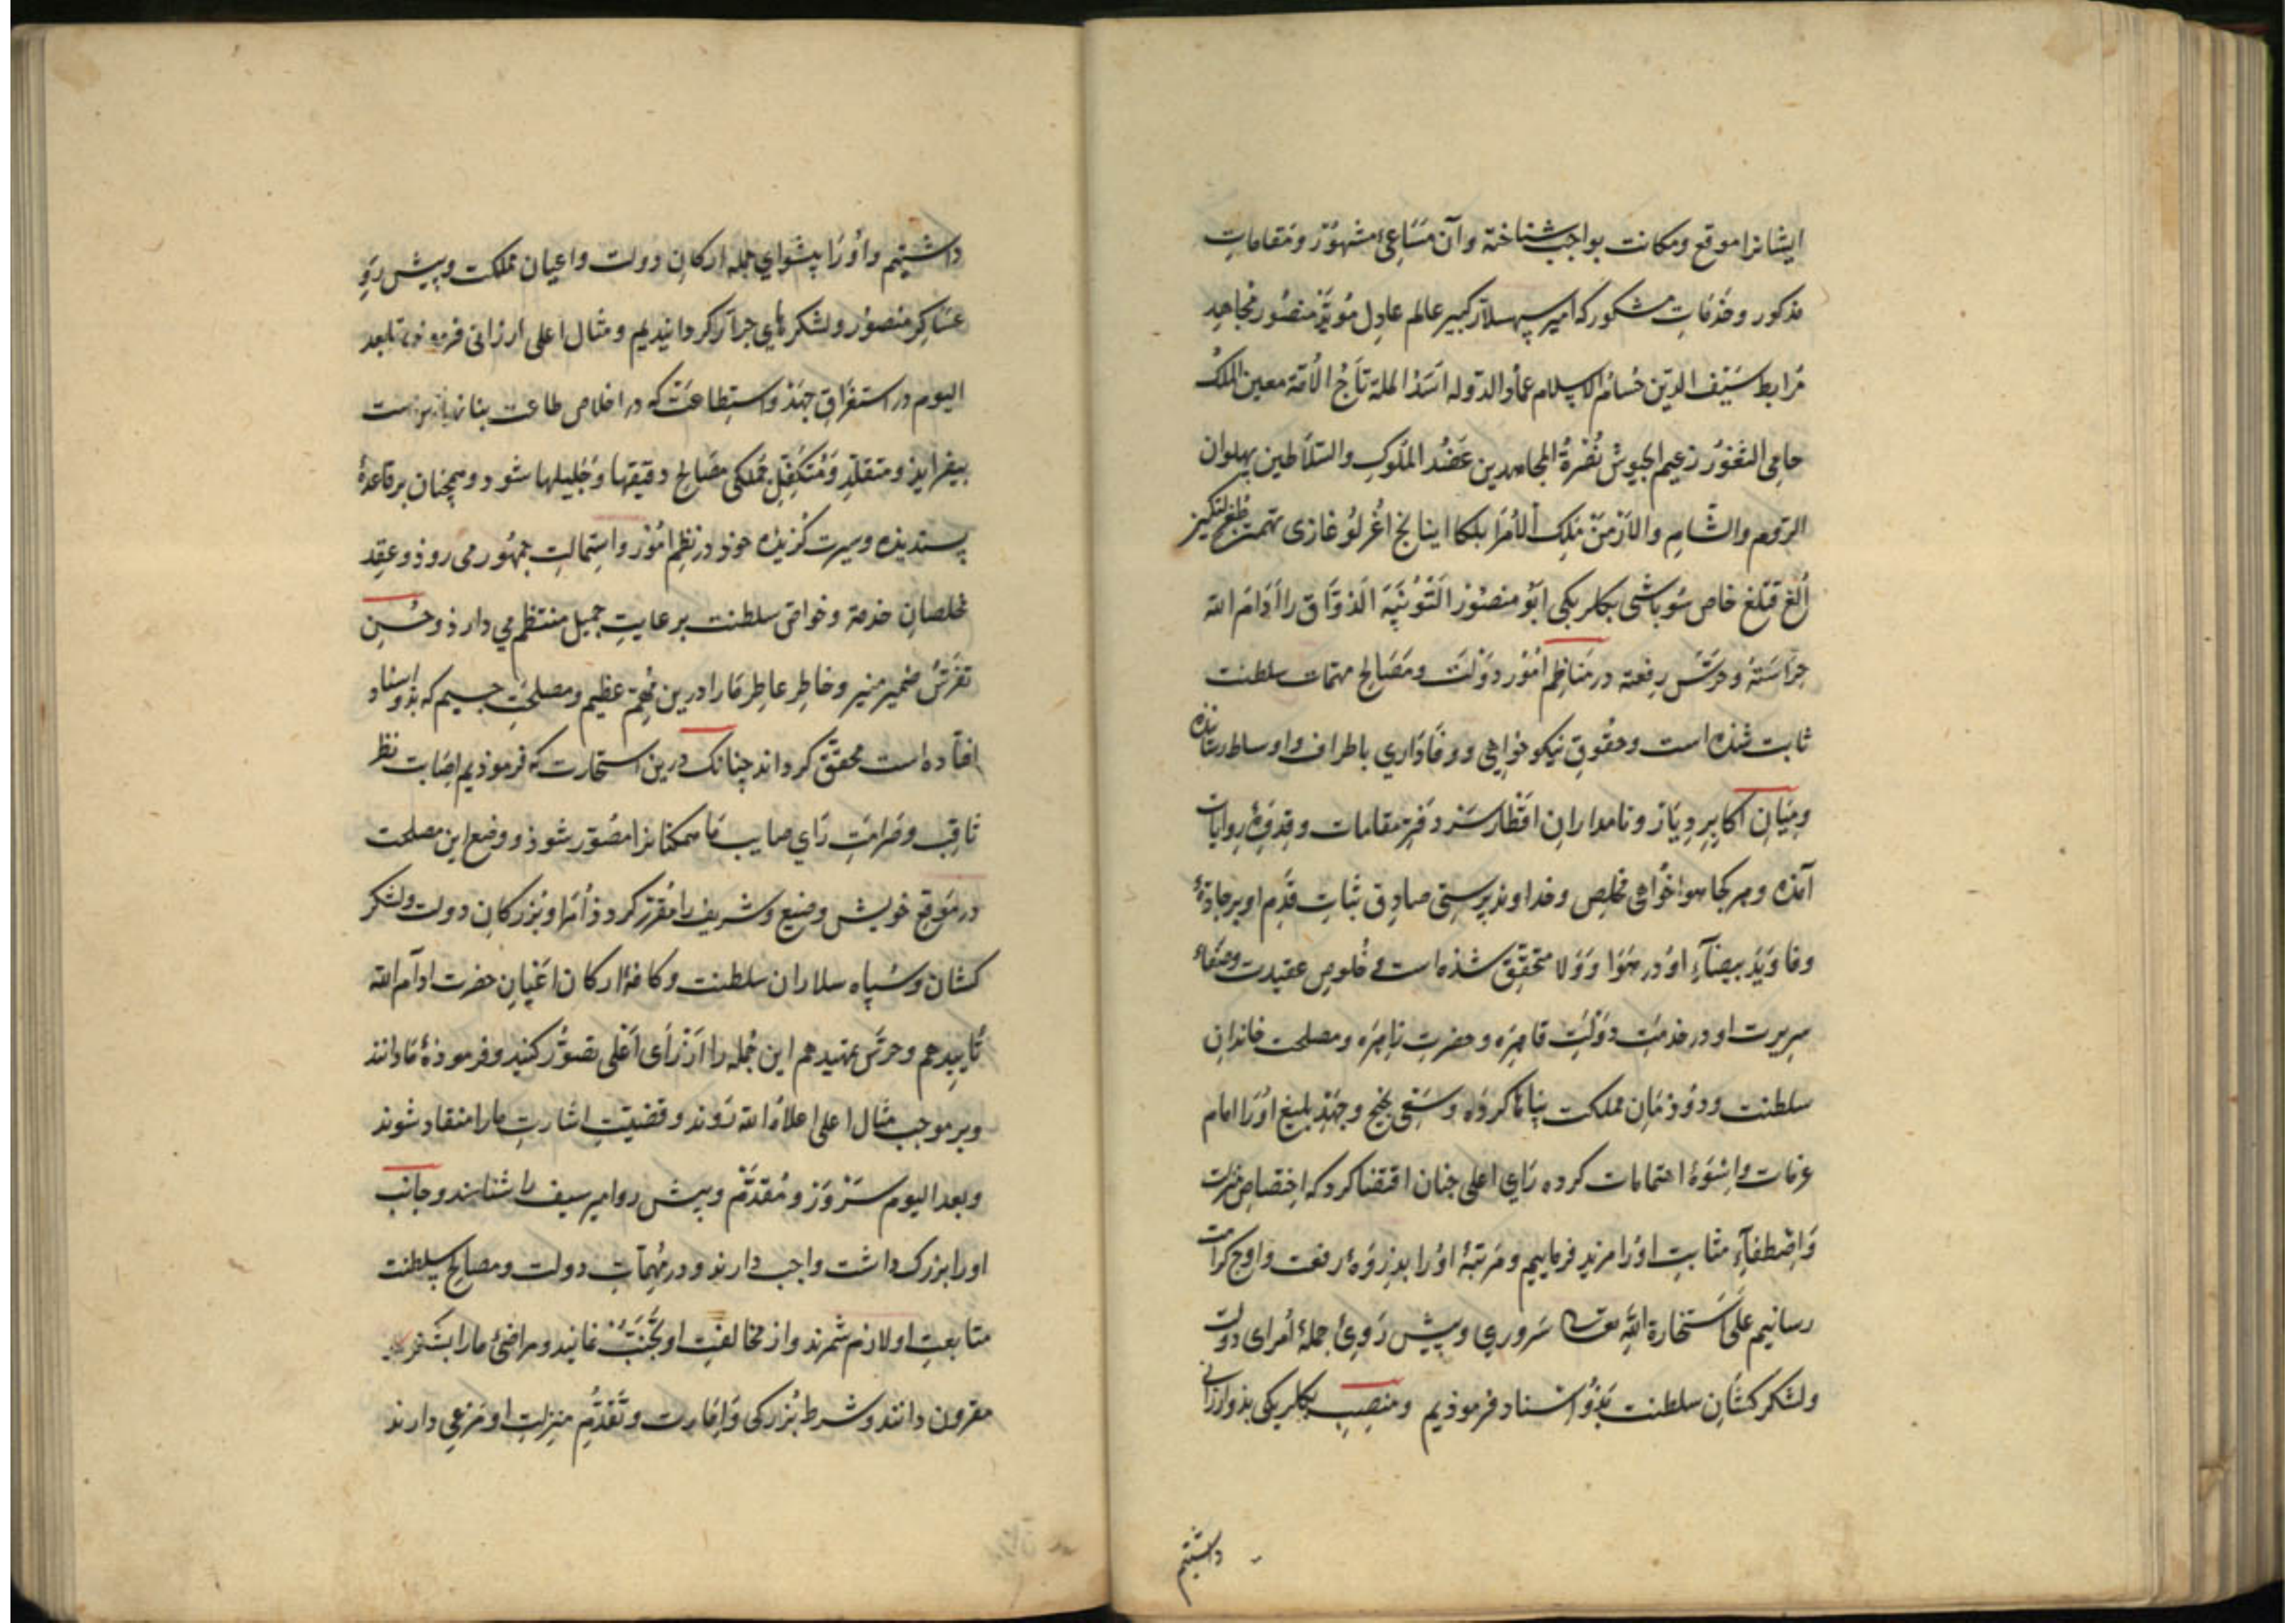 ایشانرا موقع ومکانت بواجب شناخته وآن مَسَاعیِ مشهُوُر ومَقامَاتِ
مذکور وخَدَمَاتِ مشکور که امیر سپهسلار کبیر عالم عادِل مُویَّد منصُور مُجاهِد
مُرابط سَیْف الدین حُسَام الاسلام عماد الدَوله اسَد المله تَاجُ الاُمّة معین الملکُ
حامِی الثغوُر زعیم الجیوش نُصْرةُ المجاهدین عَضُد المُلوکِ والسّلاطین پهلوان
الرّوم والشّامِ والاَرْمَنْ مَلِک الأمَرَا بلکا اینانج اغُرلُو غازی
اُلغ قتلغ خاص سُوباشی بکلربکی ابَوُ منصوُر الَتُوُنْبَه الذوَّاق را اَدَامَ الله
حِرَاسَتَهُ وحَرَسَ رِفعته در مَنَاظِم اُمُوُر دَوْلَتْ ومَصَالح مهمّات سلطنت
ثابت شُذه است وحقُوقِ نیکو خواهی ووفَادَاري باطراف واوساط رسَانیده
ومِیَانِ اکَابِرِ دِیَار ونامدارانِ اقَطْار سَرْدفترِ مقامات وقِدوَۀ روایات
آمَذه وهر کجا هواخُواهی مخلِص وخداوند پرستی صادِق ثبَاتِ قَدَمِ او بر جادّۀ
وفا ویَدِ بیضآءِ اوُ در هَوَا وَوَلا متحقّق شُذه است وخُلوصِ عقیدت وصَفَاءِ
سریرت او در خدمَتِ دَوْلَتِ قاهِرَه وحضرتِ زاهِرَه ومصلحت خاندانِ
سلطنت ودوُذمَانِ مملکت بنَامَا کرده وسَعْیِ نجیح وجَهْدِ بلیغ اوُرَا امام
عزمات واُسْوَۀ اهتمامات کرده رَايِ اعلی چنان اقتضا کرد که اِختصاصِ منزلت
وَاِصْطِفَآءِ مثابتِ اوُرا مزید فرماییم ومَرتبۀ اوُرا بذِرْوَۀ رفعت واوج کرامت
رسانیم عَلَی اسْتِخَارَةِ الله تعالی سَروری وپیش رَویِ جملۀ اُمَرای دولت
ولشکرکشانِ سلطنت بَذوُ اسناد فرموذیم ومنصِبِ بکلربکی بذو ارزانی
داشتیم
داشتیم واوُ رَا پیشواي جمله ارکانِ دولت واعیان مملکت وپیش رَوِ
عَسَاکِرِ منصوُر ولشکرهَايِ جرّار کردانیدیم ومثال اعلی ارزانی فرموذیم تا بعد
الیوم در استغراقِ جَهْدْ واستِطاعَتْ که در اخلاص طاعت
بیفزایذ ومتقلّدِ ومُتکفّل جُملکی مصَالح دقیقها وجَلیلها شود وهمچنان بر قاعدۀ
پسندیذه وسیرت کُزیذه خوذ در نظِمِ اُمُوْر واِستِمالتِ جمهُور می روذ وعِقِد
مخلصانِ خدمة وخواصّ سلطنت برعایتِ جمیل منتظم می دارذ وحُسِن
تفرّسِ ضمیر منیر وخاطِر عاطِر مَا را درین مُهِمّ عظیم ومصلحتِ جسیم که بذو اسناد
افتاده است محقّق کرداند چنانک درین استخارت که فرموذیم اِصَابت نظر
ثاقِب وصَرامتِ رَايِ صایب مَا همکنانرا مصَوّر شوذ ووضع این مصلحت
در مَوقعِ خویش وضیع وشریف را مُقرّر کردد اُمَرا وبُزرکان دولت ولشکر
کشان وسُپاه سلاران سلطنت وکافۀ ارکان اَعْیَانِ حضرت ادَام الله
تأییدهم وحَرَسَ تمهیدهم این جُمله را از رَای اَعْلی تصَوّر کنند وفرموذۀ مَا دانند
وبر موجب مثال اعلی اعلاهُ الله رَوند وقضیّتِ اشارتِ ما را منقاد شوند
وبعد الیوم سَرْوَرْ ومُقَدَّم وپیش رو امیر سیف را شناسند وجانب
او را بزرک داشت واجب دارند ودر مُهمّاتِ دولت ومصالح سلطنت
متابعتِ او لازم شمرند واز مخالفتِ او تَجَنُّبْ نمایند ومراضیِ ما را
مقرون دانند وشرط بُزرکی واِمَارت وتَقَدُّمِ منزلتِ او مَرْعِی دارند